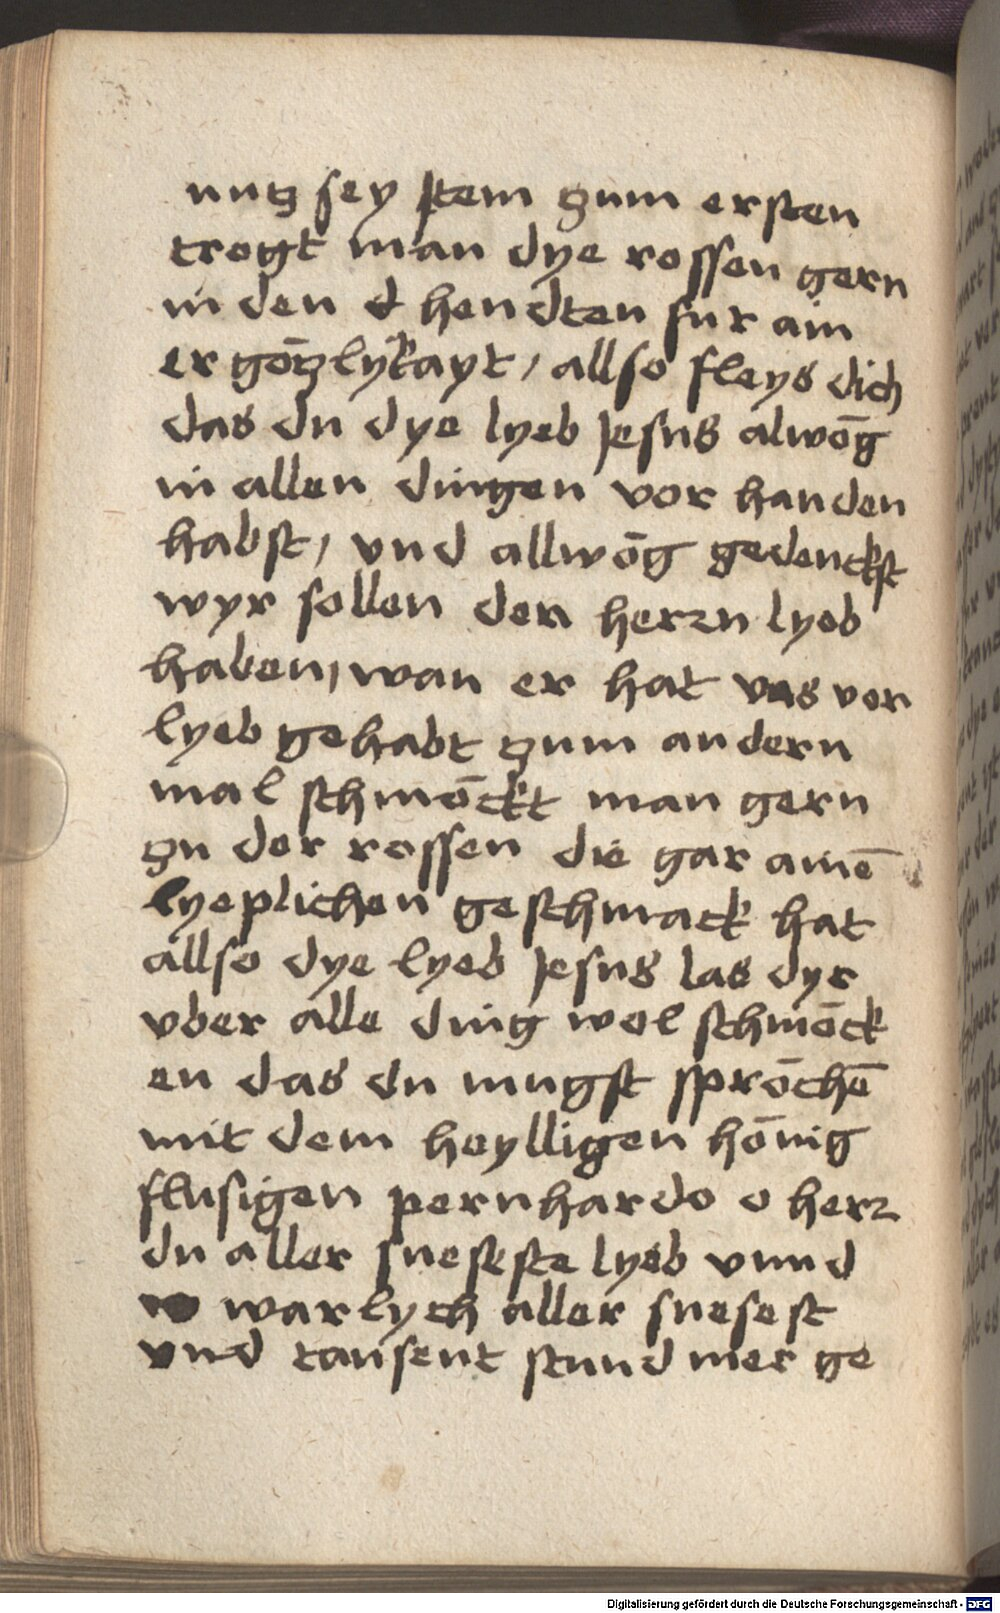 nug sey Jtem zum ersten
tregt man dye rossen gern
in den d hendten fur ain
er gōtzlykayt / allso fleys dich
das du dye lyeb Jesus alwōg
in allen dingen vor handen
habst / vnd allwōg gedenckst
wyr sollen den herzn lyeb
haben / wan er hat vns vor
lyeb gehabt zum andern
mal schmōckt man gern
zu der rossen die gar ainē
lyeplichen geschmack hat
allso dye lyeb Jesus las dyr
vber alle ding wol schmōck
en das du mugst sprōchē
mit dem heylligen hōnig
flusigen pernhardo o herz
du aller sueseste lyeb vnnd
warlych aller suesest
vnd tausent stund mer ge
Digitalisierung gefördert durch die Deutsche Forschungsgemeinschaft - DFG